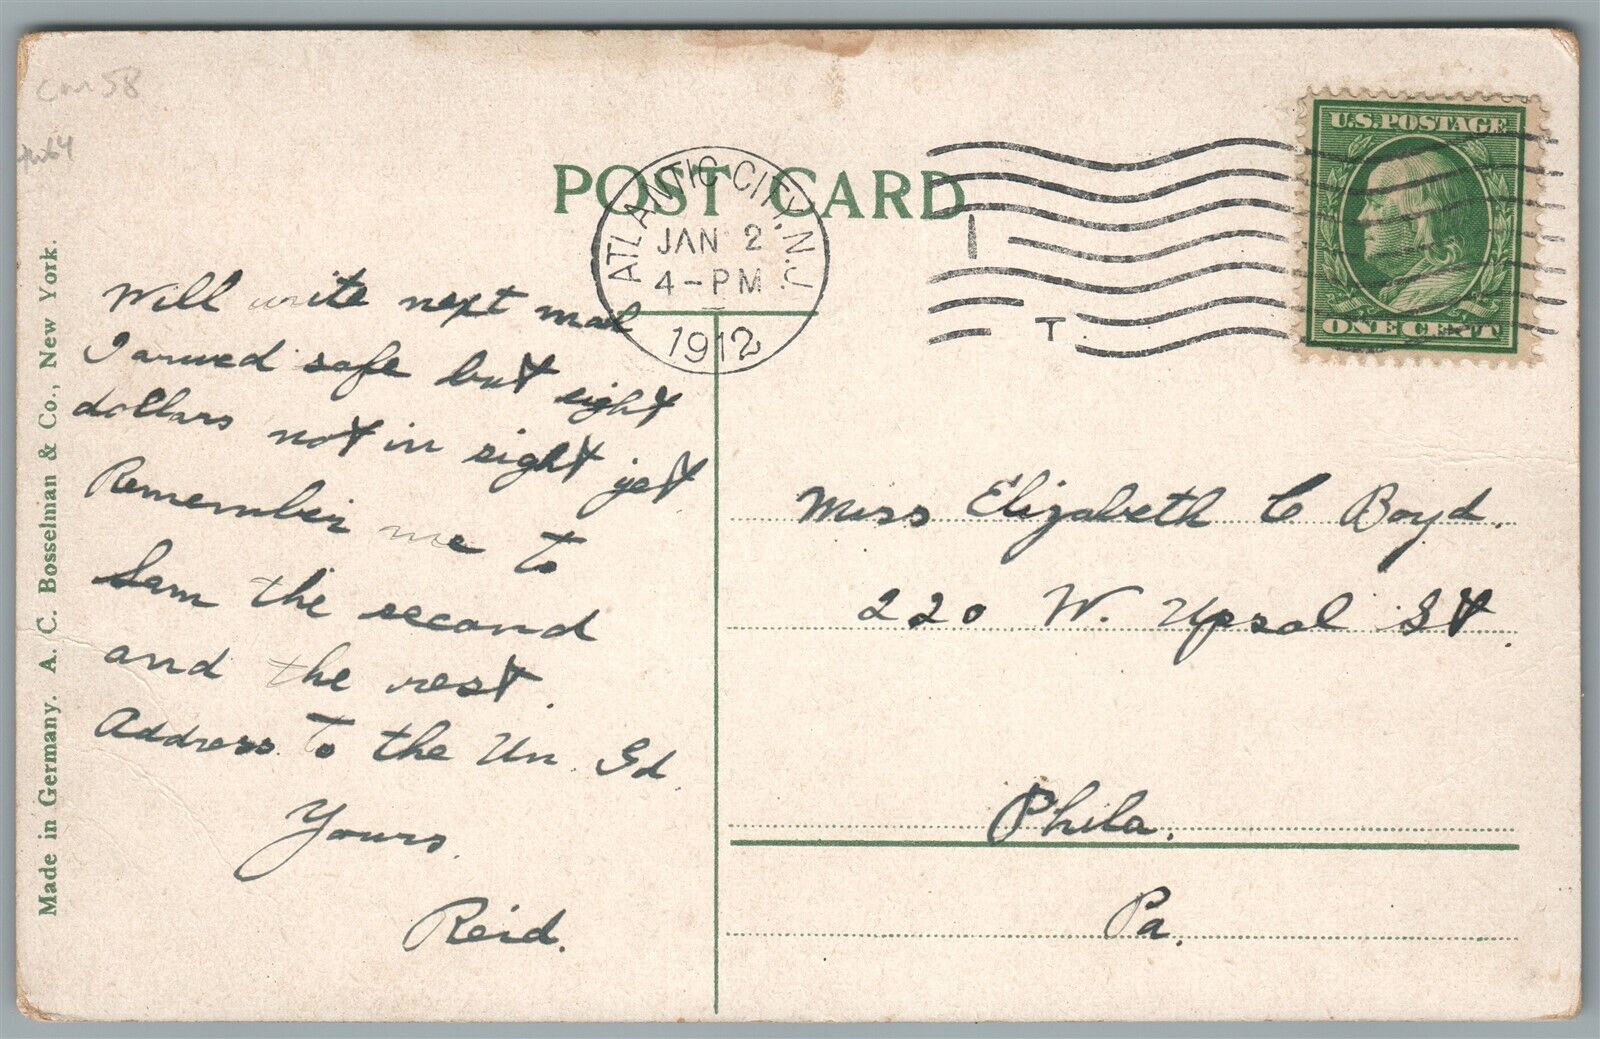 POST CARD
ATLANTIC CITY, N.J.
JAN 2
4-PM
1912
T
U.S. POSTAGE
ONE CENT
Will write next mail
I arrived safe but eight
dollars not in sight yet
Remember me to
Sam the second
and the rest.
Address to the Un. Sd.
Yours
Reid.
Miss Elizabeth C Boyd.
220 W. Upsal St.
Phila.
Pa.
Made in Germany. A. C. Bosselman & Co., New York.